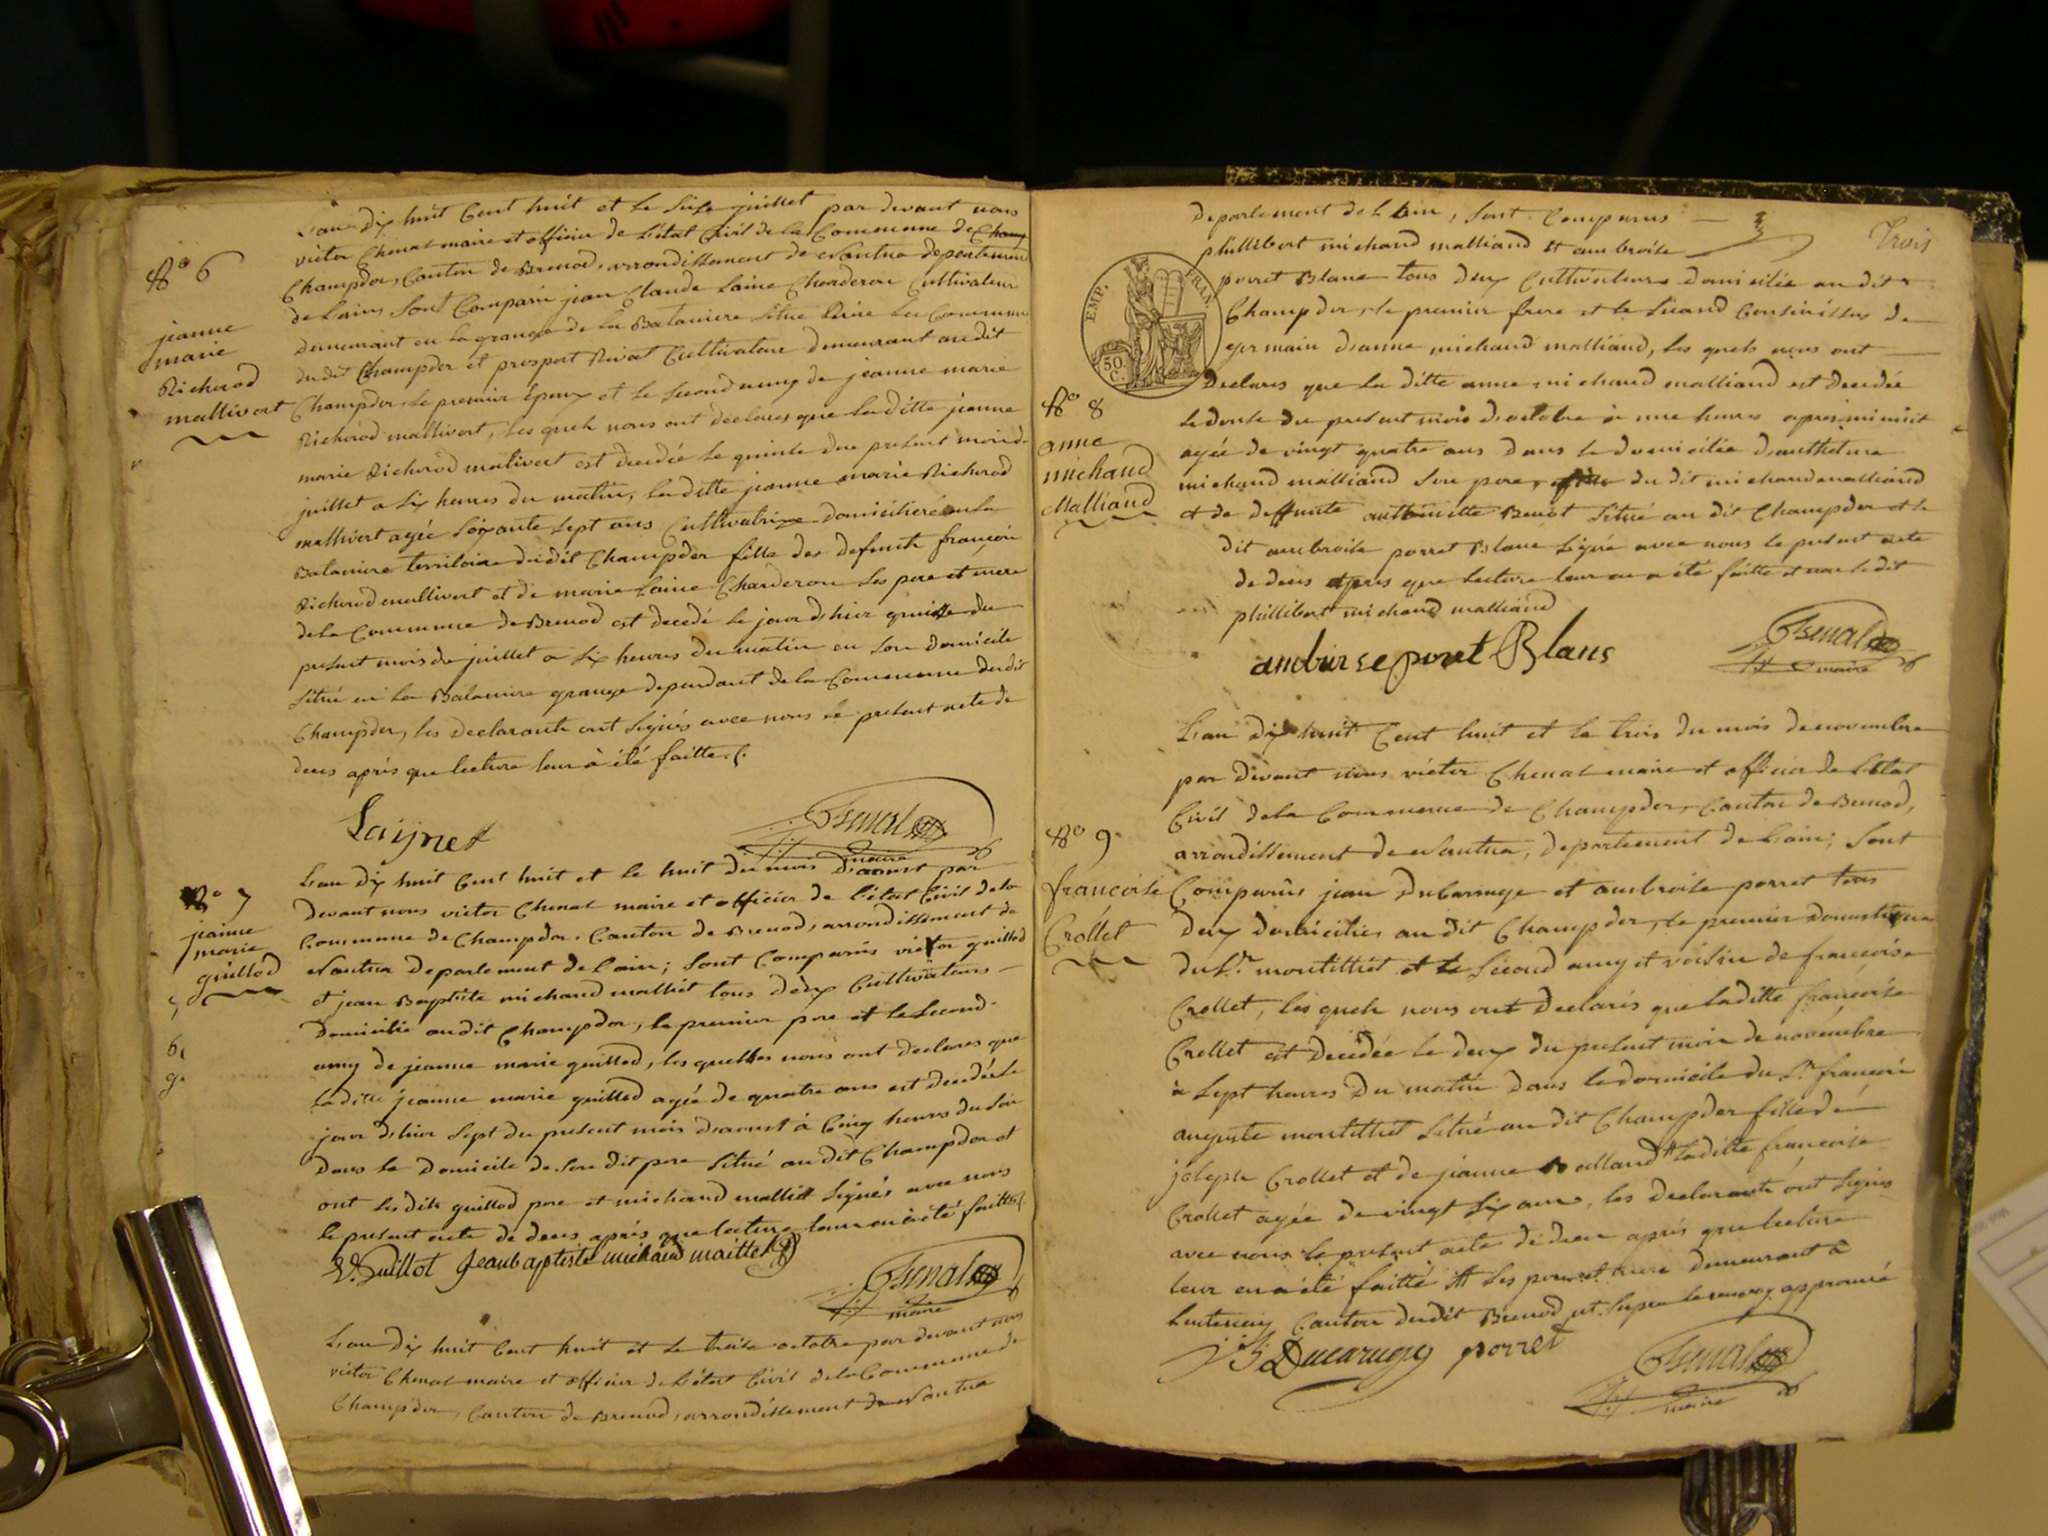 L'an dix huit Cent huit et le seize juillet par devant nous
victor Chenal maire et officier de l'etat Civil de la Commune de Champ
Champdor, Canton de Brenod, arrondissement de Nantua departement
de l'ain, sont Comparu jean Claude Laine Charderon Cultivateur
demeurant en la grange de la Bataniere situé Riere la Commune
du dit Champdor et prospert Rivat Cultivateur demeurant audit
Champdor, le premier Epoux et le second amy de jeanne marie
Richerod mallivert, les quels nous ont declares que la ditte jeanne
marie Richerod malivert est decedée le quinze du present mois de
juillet a six heures du matin, la ditte jeanne marie Richerod
mallivert agée soixante sept ans Cultivatrixe domiciliere en la
Bataniere territoire du dit Champdor fille des defunts françois
Richerod mallivert et de marie Laine Charderon ses pere et mere
de la Commune de Brenod est decedé le jour d'hier quinze du
present mois de juillet a six heures du matin en son domicile
situé en la Bataniere grange dependant de la Commune du dit
Champdor, les declarants ont signés avec nous le present acte de
deces après que lecture leur à été faitte.
N° 6
jeanne
marie
Richerod
mallivert
Laijnet
Chenal
maire
L'an dix huit Cent huit et le huit du mois d'aoust par
devant nous victor Chenal maire et officier de l'état Civil de la
Commune de Champdor, Canton de Brenod, arrondissement de
Nantua departement de l'ain; sont Comparus victor guillod
et jean Baptiste michaud malliet tous deux Cultivateurs
domicilié au dit Champdor, le premier pere et le second
amy de jeanne marie guillod, les quelles nous ont declares que
la ditte jeanne marie guillod agée de quatre ans est decedée le
jour d'hier sept du present mois d'aoust à Cinq heures du soir
dans le domicile de son dit pere situé au dit Champdor et
ont les dits guillod pere et michaud malliet signés avec nous
le present acte de deces après que lecture leur en à été faitte
N° 7
jeanne
marie
guillod
V. Guillot Jeanbaptiste michaud maillet
Chenal
maire
L'an dix huit Cent huit et le treize octobre par devant nous
victor Chenal maire et officier de l'état Civil de la Commune de
Champdor, Canton de Brenod, arrondissement de Nantua
Trois
departement de l'ain, sont Comparus
phillibert michaud malliand et ambroise
porret Blanc tous deux Cultivateurs domiciliés au dit
Champdor, le premier frere et le second Cousin issus de
germain d'anne michaud malliand, les quels nous ont
declares que la ditte anne michaud malliand est decedée
le douze du present mois d'octobre à une heures apres minuit
agée de vingt quatre ans dans le domicilie d'anthelme
michaud malliand son pere, fille du dit michaud malliand
et de deffunte anthoinette Benoit situé au dit Champdor et le
dit ambroise porret Blanc signé avec nous le present acte
de deces apres que lecture leur en a été faitte et non le dit
phillibert michaud malliand
EMP. FRIN.
50 C.
N° 8
anne
michaud
Malliand
ambroise porret Blans
Chenal
maire
L'an dix huit Cent huit et le trois du mois de novembre
par devant nous victor Chenal maire et officier de l'état
Civil de la Commune de Champdor, Canton de Brenod,
arrondissement de Nantua, departement de l'ain; sont
Comparus jean dubaruge et ambroise porret tous
deux domicilies au dit Champdor, le premier domestique
du Sr. montillet et le second amy et voisin de françoise
Crollet, les quels nous ont declarés que la ditte françoise
Crollet est decedée le deux du present mois de novembre
à sept heures du matin dans le domicile du Sr. françois
auguste montillet situé au dit Champdor fille de
joseph Crollet et de jeanne Rolland # la ditte françoise
Crollet agée de vingt six ans, les declarants ont signés
avec nous le present acte de deces après que lecture
leur en a été faitte # ses pere et mere demeurant à
Canton du dit Brenod ut supra le renvoy approuvé
N° 9
françoise
Crollet
Ducarugy porret
Chenal
maire